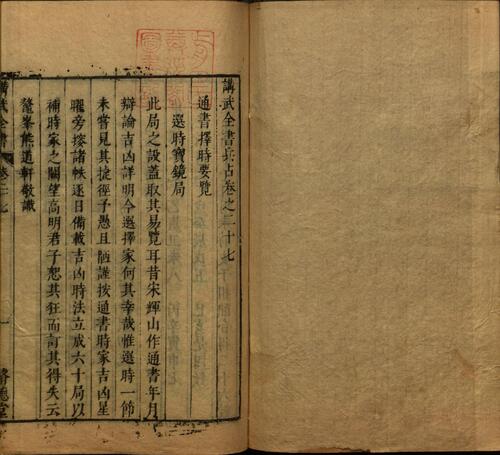 講武全書兵占卷之二十七
通書擇時要覽
選時寶鏡局
此局之設蓋取其易覽耳昔宋輝山作通書年月
辯論吉凶詳明今選擇家何其幸哉惟選時一節
未嘗見其捷徑予愚且陋謹按通書時家吉凶星
曜旁採諸帙逐日備載吉凶時法立成六十局以
補時家之闕望高明君子恕其狂而訂其得失云
鼇峯熊道軒敬識
講武全書
卷二七
一